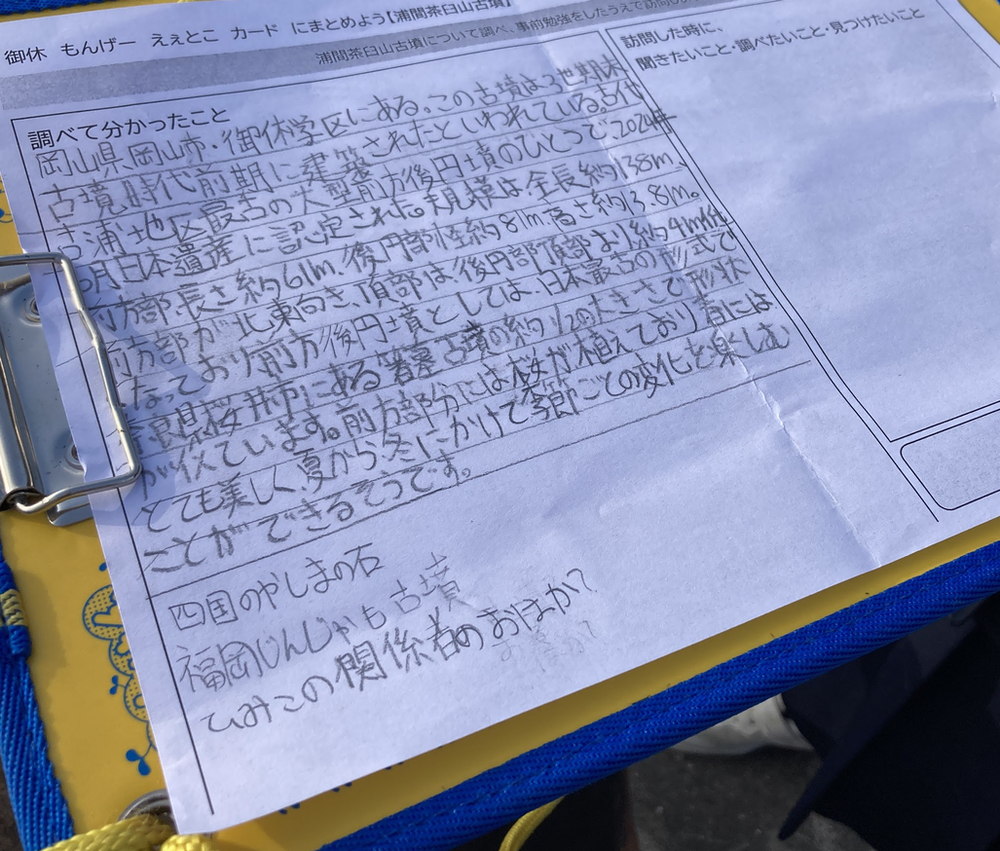 御休 もんげー えぇとこ カード にまとめよう【浦間茶臼山古墳】
浦間茶臼山古墳について調べ、事前勉強をしたうえで訪問し
調べて分かったこと
岡山県岡山市・御休学区にある。この古墳は3世期末
古墳時代前期に建築されたといわれている。古代
吉浦地区最古の大型前方後円墳のひとつで、202
月日本遺産に認定された。規模は全長約138m、
前方部長さ約61m、後円部怪約81m高さ約13.81m。
前方部が北東向き、頂部は後円部頂部より約4m低
なっており前方後円墳としては、日本最古の形式で
良県桜井市にある箸墓古墳の約1/2の大きさで形状
が似ています。前方部分には桜が植えており春には
とても美しく夏から冬にかけて季節ごとの変化を楽しむ
ことができるそうです。
四国のやしまの石
福岡じんじゃも古墳
ひみこの関係者のおはか?
訪問した時に、
聞きたいこと・調べたいこと・見つけたいこと